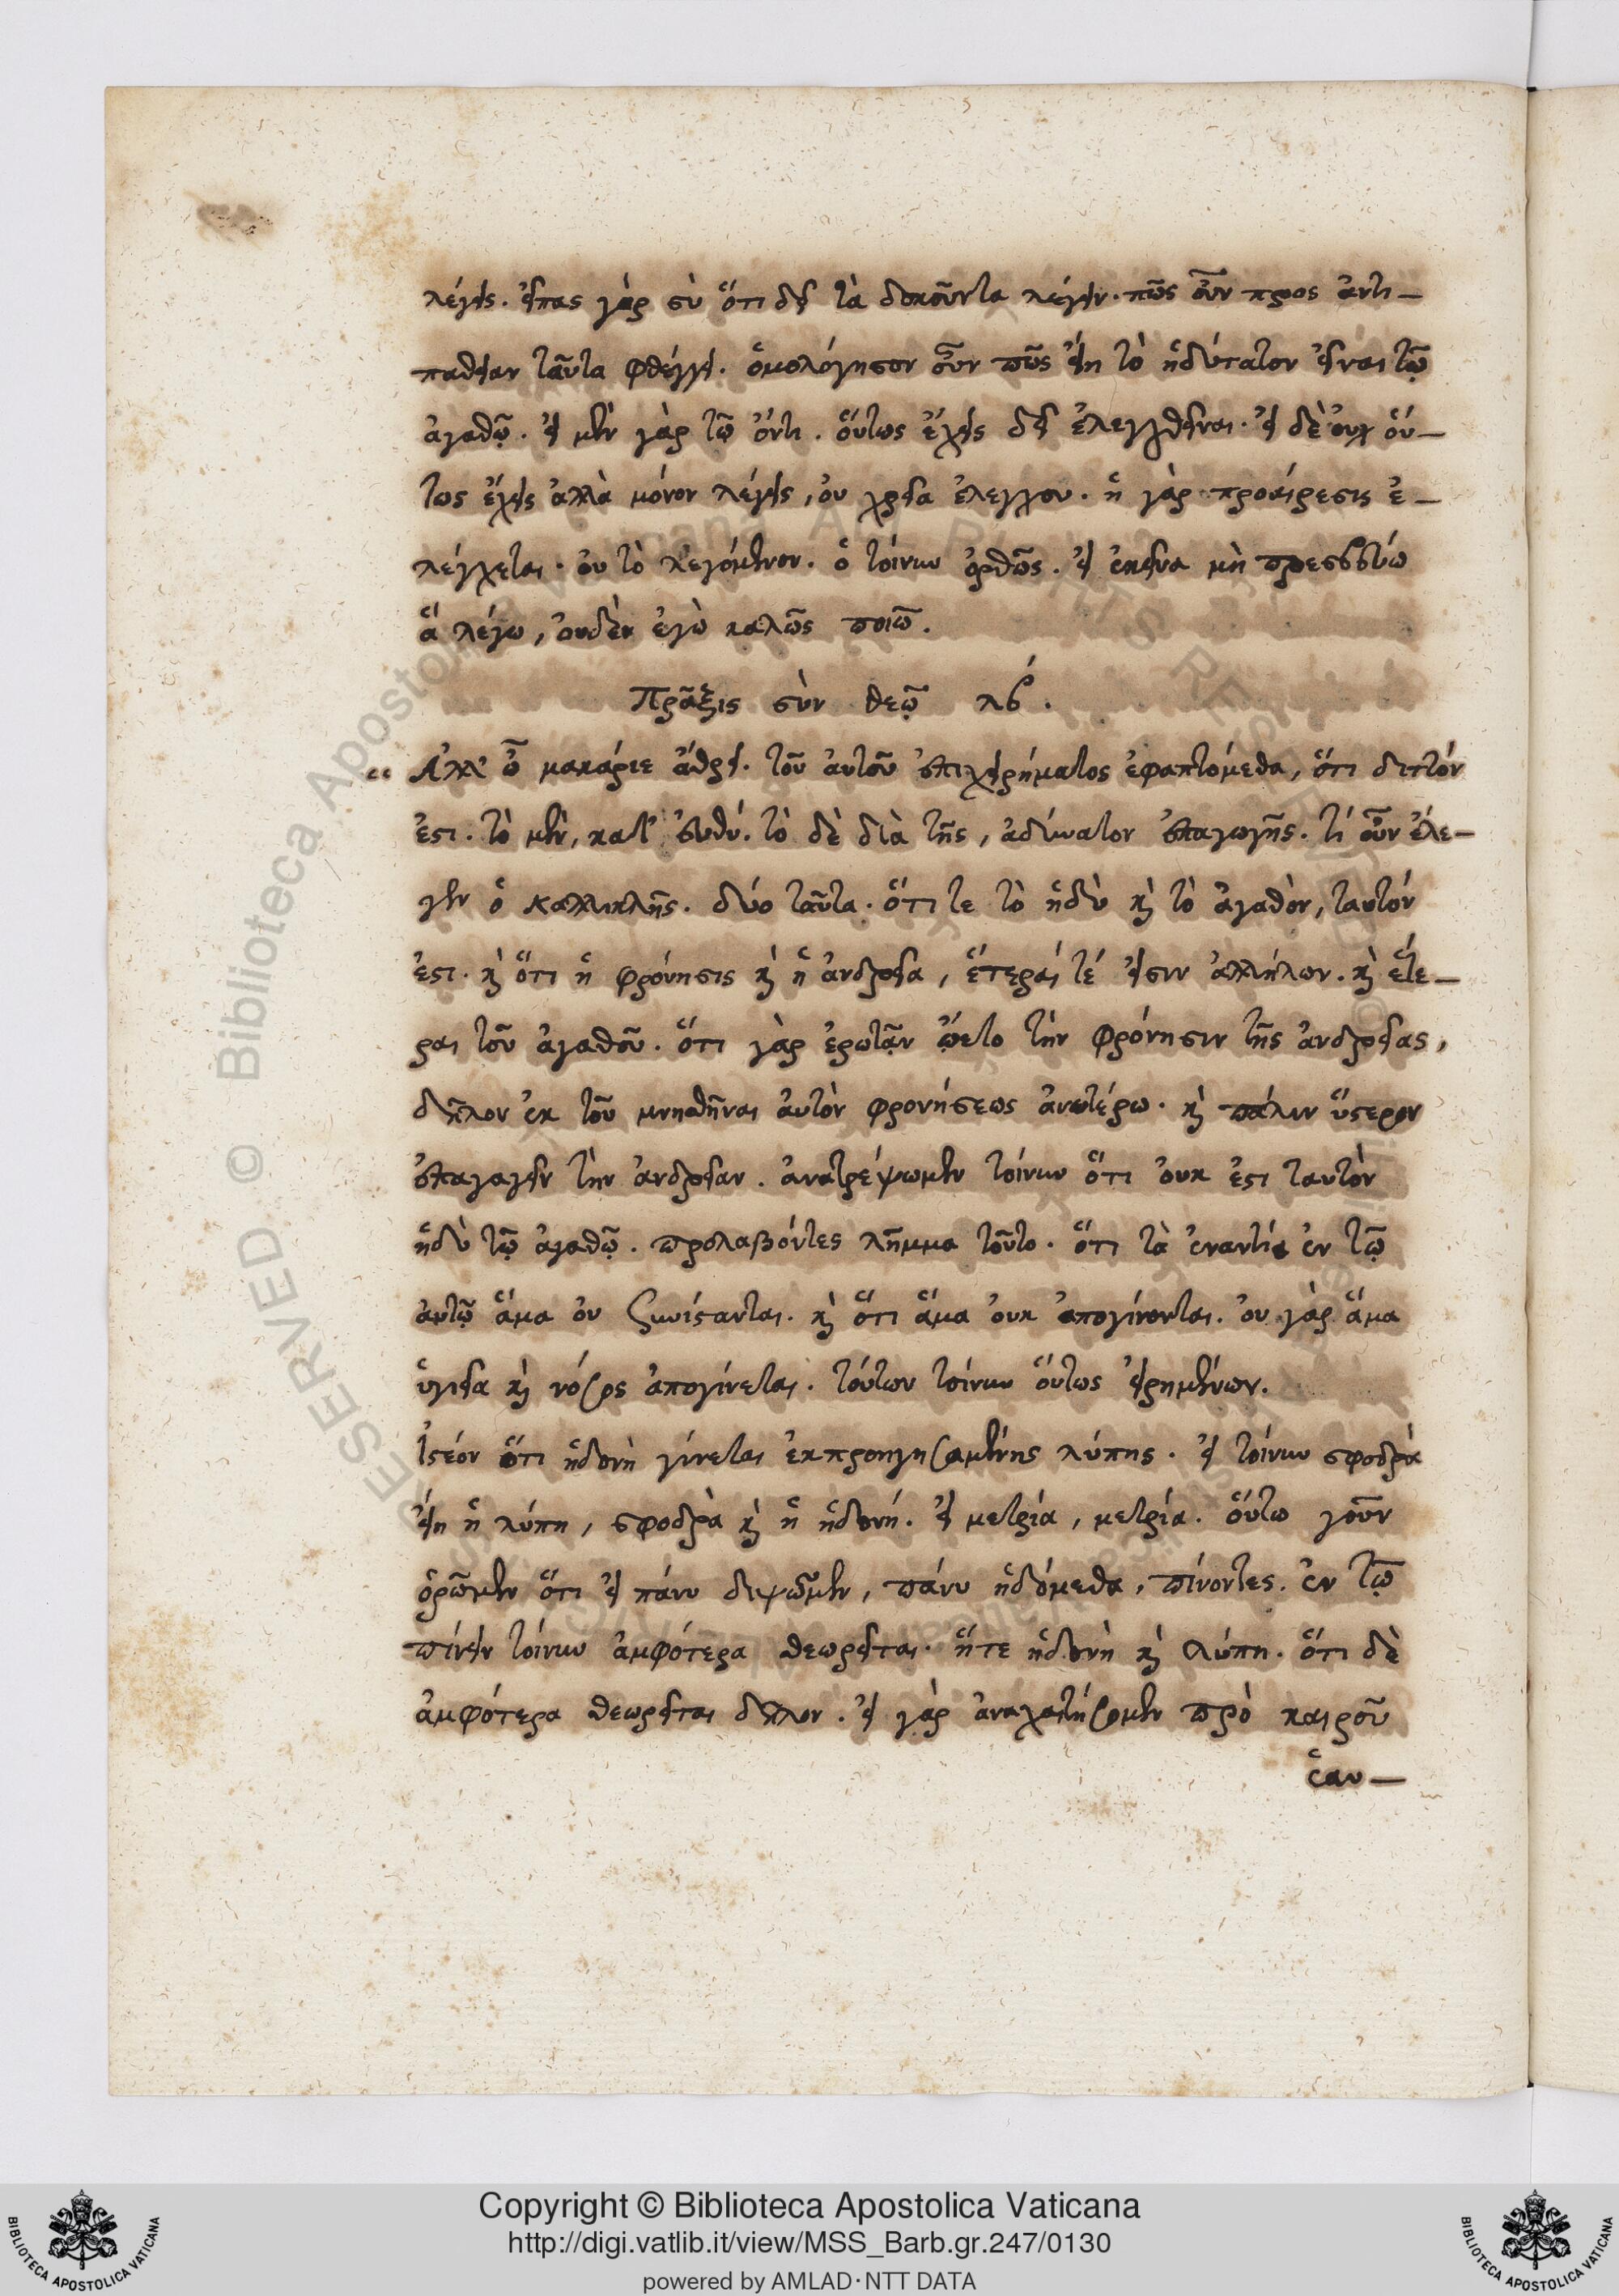 λέγεις. εἶπας γὰρ σὺ ὅτι δεῖ τὰ δοκοῦντα λέγειν. πῶς οὖν προς ἀντι-
παθειαν ταῦτα φθέγγει. ὁμολόγησον οὖν πῶς εἴη τὸ ἡδύτατον εἶναι τῶ
ἀγαθῶ. εἰ μὲν γὰρ τῶ ὄντι. οὕτως ἔχεις δεῖ ἐλεγχθεῖναι. εἰ δὲ οὐχ οὕ-
τως ἔχεις ἀλλὰ μόνον λέγεις, οὐ χρεία ἐλεγχου. ἡ γὰρ προαίρεσις ἐ-
λέγχεται. οὐ τὸ λεγόμενον. ὁ τοίνυν ὀρθῶς. εἰ ἐκεῖνα μὴ πρεσβεύω
ἃ λέγω, οὐδὲν ἐγὼ καλῶς ποιῶ.
Πρᾶξις σὺν θεῶ λϛ.
“ Ἀλλ' ὦ μακάριε ἄθρει. τοῦ αὐτοῦ ἐπιχειρήματος ἐφαπτόμεθα, ὅτι διττόν
ἐστι. τὸ μὲν, κατ' εὐθύ. τὸ δὲ διὰ τῆς, ἀδύνατον ἐπαγωγῆς. τί οὖν ἔλε-
γεν ὁ καλλικλῆς. δύο ταῦτα. ὅτι τε τὸ ἡδὺ καὶ τὸ ἀγαθὸν, ταυτόν
ἐστι. καὶ ὅτι ἡ φρόνησις καὶ ἡ ἀνδρεία, ἕτεραί τέ εἰσιν ἀλλήλων. καὶ ἕτε-
ραι τοῦ ἀγαθοῦ. ὅτι γὰρ ἐρωτᾶν ᾤετο τὴν φρόνησιν τῆς ἀνδρείας,
δῆλον ἐκ τοῦ μνησθῆναι αὐτὸν φρονήσεως ἀνωτέρω. καὶ πάλιν ὕστερον
ἐπαγαγεῖν τὴν ἀνδρείαν. ἀνατρέψωμεν τοίνυν ὅτι οὐκ ἐστι ταυτὸν
ἡδὺ τῶ ἀγαθῶ. προλαβόντες λῆμμα τοῦτο. ὅτι τὰ ἐναντία ἐν τῶ
αὐτῶ ἅμα οὐ συνίστανται. καὶ ὅτι ἅμα οὐκ ἀπογίνονται. οὐ γὰρ ἅμα
ὑγιεία καὶ νόσος ἀπογίνεται. τούτων τοίνυν οὕτως εἰρημένων.
ἰστέον ὅτι ἡδονὴ γίνεται ἐκπροηγησαμένης λύπης. εἰ τοίνυν σφοδρὰ
εἴη ἡ λύπη, σφοδρὰ καὶ ἡ ἡδονή. εἰ μετρία, μετρία. οὕτω γοῦν
ὁρῶμεν ὅτι εἰ πάνυ διψῶμεν, πάνυ ἡδόμεθα, πίνοντες. ἐν τῶ
πίνειν τοίνυν ἀμφότερα θεωρεῖται. ἥτε ἡδονὴ καὶ λύπη. ὅτι δὲ
ἀμφότερα θεωρεῖται δῆλον. εἰ γὰρ ἀναχαιτίσομεν πρὸ καιροῦ
ἑαυ-
Copyright © Biblioteca Apostolica Vaticana
http://digi.vatlib.it/view/MSS_Barb.gr.247/0130
powered by AMLAD·NTT DATA